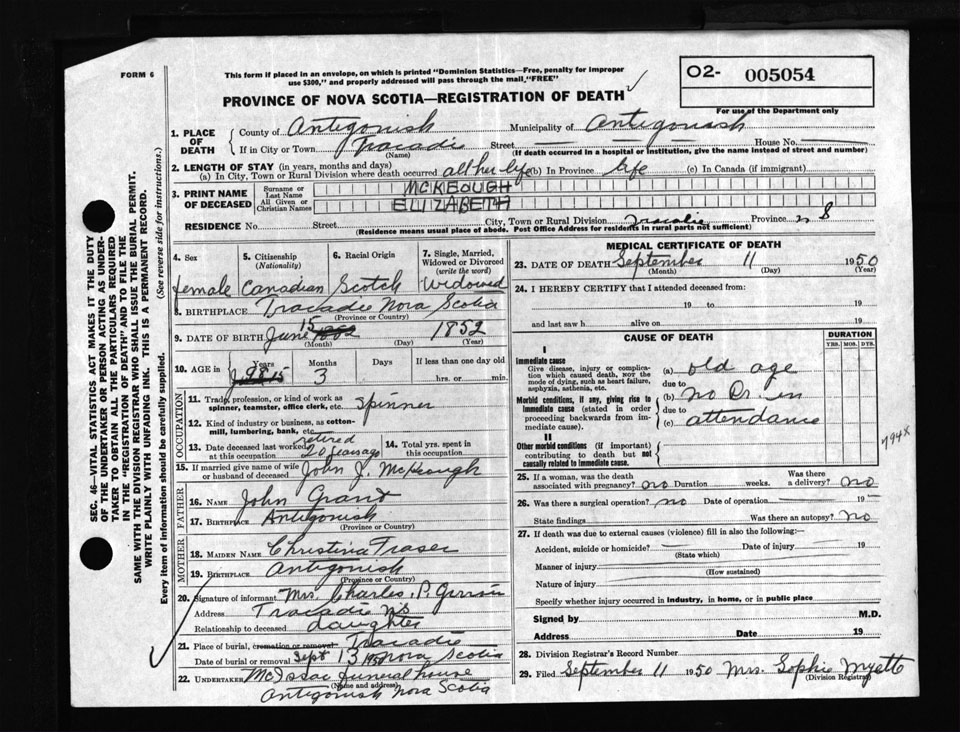 FORM 6
This form if placed in an envelope, on which is printed "Dominion Statistics—Free, penalty for improper
use $300," and properly addressed will pass through the mail "FREE"
02- 005054
For use of the Department only
PROVINCE OF NOVA SCOTIA—REGISTRATION OF DEATH
1. PLACE OF DEATH { County of Antigonish Municipality of Antigonish
If in City or Town Tracadie Street — House No. —
(Name) (If death occurred in a hospital or institution, give the name instead of street and number)
2. LENGTH OF STAY (in years, months and days)
(a) In City, Town or Rural Division where death occurred all her life (b) In Province life (c) In Canada (if immigrant)
3. PRINT NAME OF DECEASED { Surname or Last Name MCKEOUGH
All Given or Christian Names ELIZABETH
RESIDENCE No. Street City, Town or Rural Division Tracadie Province N S
(Residence means usual place of abode. Post Office Address for residents in rural parts not sufficient)
4. Sex 5. Citizenship (Nationality) 6. Racial Origin 7. Single, Married, Widowed or Divorced (write the word)
female Canadian Scotch Widowed
8. BIRTHPLACE Tracadie Nova Scotia
(Province or Country)
9. DATE OF BIRTH June 15 1852
(Month) (Day) (Year)
10. AGE in Years Months Days If less than one day old
98 3 hrs. or min.
OCCUPATION
11. Trade, profession, or kind of work as spinner, teamster, office clerk, etc. Spinner
12. Kind of industry or business, as cotton-mill, lumbering, bank, etc.
13. Date deceased last worked at this occupation retired 20 years ago
14. Total yrs. spent in this occupation
15. If married give name of wife or husband of deceased John J. McKeough
FATHER
16. NAME John Grant
17. BIRTHPLACE Antigonish
(Province or Country)
MOTHER
18. MAIDEN NAME Christina Fraser
19. BIRTHPLACE Antigonish
(Province or Country)
20. Signature of informant Mrs. Charles. P.
Address Tracadie N S
Relationship to deceased daughter
21. Place of burial, cremation or removal Tracadie
Date of burial or removal Sept 13 1950 Nova Scotia
22. UNDERTAKER McIsaac funeral house
(Name and address)
Antigonish Nova Scotia
MEDICAL CERTIFICATE OF DEATH
23. DATE OF DEATH September 11 1950
(Month) (Day) (Year)
24. I HEREBY CERTIFY that I attended deceased from:
19 to 19
and last saw h alive on 19
CAUSE OF DEATH DURATION
YRS. MOS. DYS.
I
Immediate cause
Give disease, injury or complication which caused death, NOT the mode of dying, such as heart failure, asphyxia, asthenia, etc.
(a) old age
due to
Morbid conditions, if any, giving rise to immediate cause (stated in order proceeding backwards from immediate cause).
(b) no Dr. in
due to
(c) attendance
794X
II
Other morbid conditions (if important) contributing to death but not causally related to immediate cause.
25. If a woman, was the death associated with pregnancy? no Duration weeks. Was there a delivery? no
26. Was there a surgical operation? no Date of operation — 19
State findings Was there an autopsy? no
27. If death was due to external causes (violence) fill in also the following:
Accident, suicide or homicide? — Date of injury — 19
(State which)
Manner of injury
(How sustained)
Nature of injury
Specify whether injury occurred in industry, in home, or in public place
Signed by M.D.
Address Date 19
28. Division Registrar's Record Number
29. Filed September 11 1950 Mrs. Sophie Myette
(Division Registrar)
SEC. 46—VITAL STATISTICS ACT MAKES IT THE DUTY
OF THE UNDERTAKER OR PERSON ACTING AS UNDER-
TAKER TO OBTAIN ALL THE PARTICULARS REQUIRED
IN THE "REGISTRATION OF DEATH" AND TO FILE THE
SAME WITH THE DIVISION REGISTRAR WHO SHALL ISSUE THE BURIAL PERMIT.
WRITE PLAINLY WITH UNFADING INK. THIS IS A PERMANENT RECORD.
Every item of information should be carefully supplied. (See reverse side for instructions.)